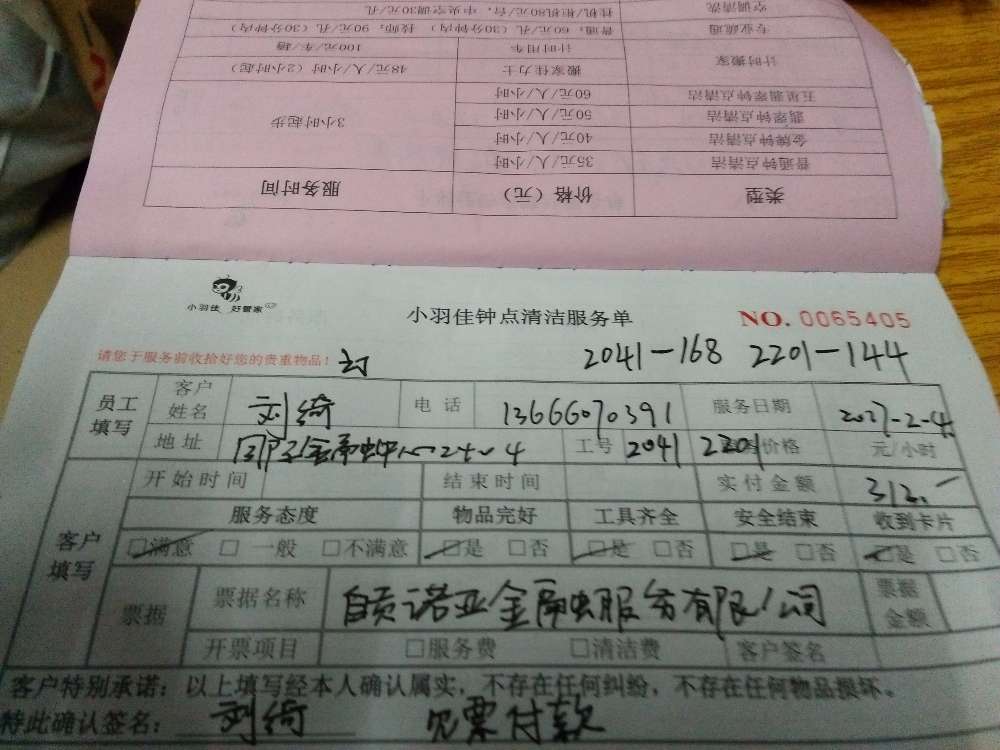 空调清洗 挂机/柜机80元/台，中央空调30元/孔
专业疏通 普通：60元/孔（30分钟内） 技师：90元/孔（30分钟内）
计时搬家 计时用车 100元/车/趟
搬家佳力士 48元/人/小时（2小时起）
五星翡翠钟点清洁 60元/人/小时
翡翠钟点清洁 50元/人/小时
金牌钟点清洁 40元/人/小时 3小时起步
普通钟点清洁 35元/人/小时
类型 价格（元） 服务时间
小羽佳 好管家
小羽佳钟点清洁服务单
NO. 0065405
请您于服务前收拾好您的贵重物品！
2041-168 2201-144
员工填写 客户姓名 刘绮 电话 13666070391 服务日期
地址 工号 2041 2201 价格 元/小时
客户填写 开始时间 结束时间 实付金额 312.-
服务态度 物品完好 工具齐全 安全结束 收到卡片
□满意 □一般 □不满意 □是 □否 □是 □否 □是 □否 □是 □否
票据 票据名称 自贡诺亚金融服务有限公司 票据金额
开票项目 □服务费 □清洁费 客户签名
客户特别承诺：以上填写经本人确认属实，不存在任何纠纷，不存在任何物品损坏。
特此确认签名： 刘绮 见票付款